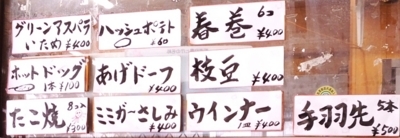 グリーンアスパラ
いため ¥400
ハッシュポテト
¥60
春巻 6コ
¥400
ホットドッグ
1本 ¥100
あげドーフ
¥400
枝豆
¥400
たこ焼 8コ
¥300
ミミガーさしみ
¥400
ウインナー
1皿 ¥400
手羽先 5本
¥500